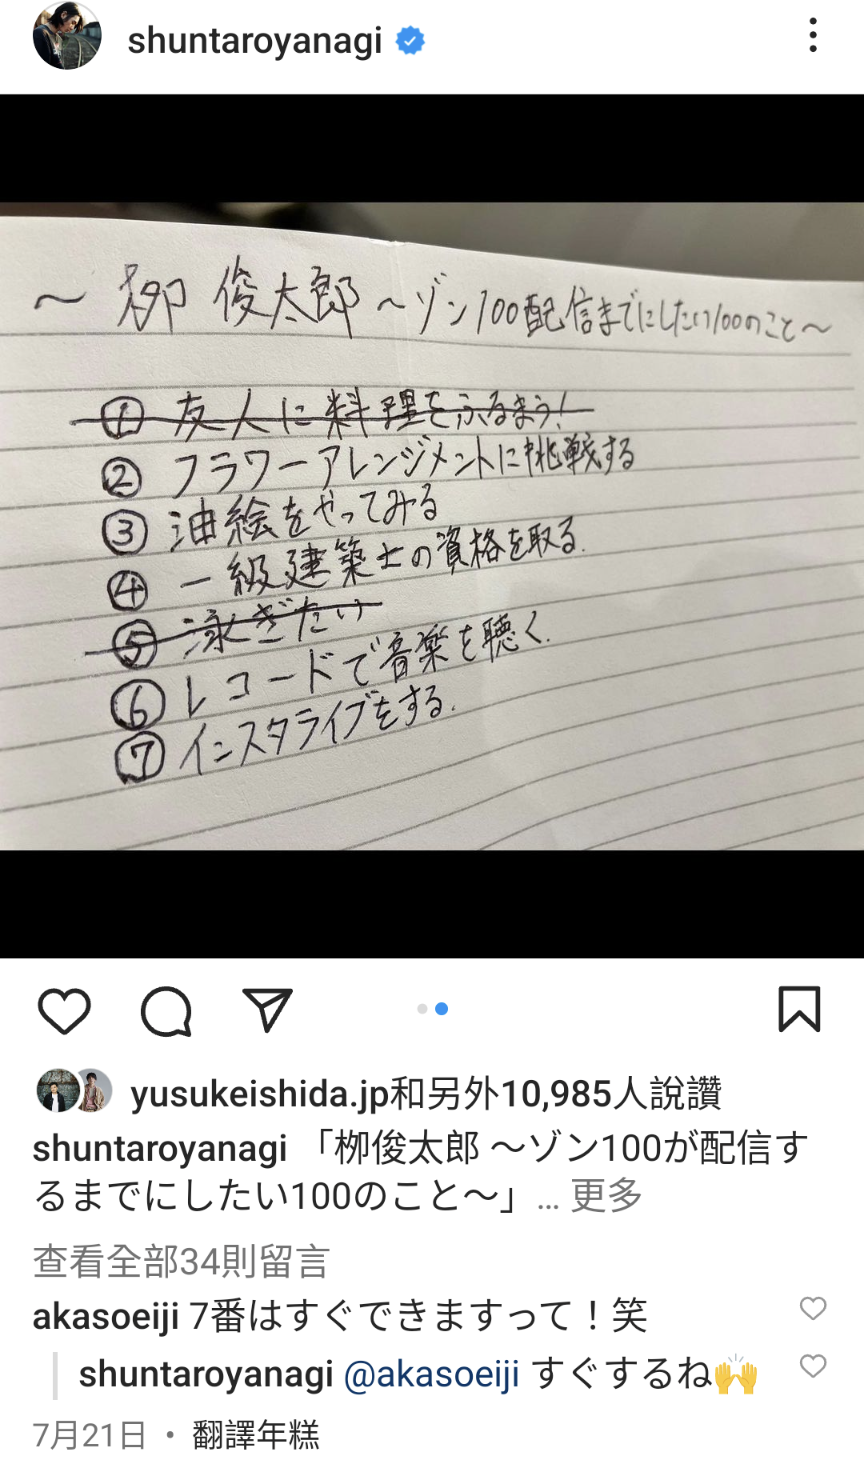 shuntaroyanagi
～栁俊太郎～ゾン100配信までにしたい100のこと～
① 友人に料理をふるまう!
② フラワーアレンジメントに挑戦する
③ 油絵をやってみる
④ 一級建築士の資格を取る.
⑤ 泳ぎたい
⑥ レコードで音楽を聴く.
⑦ インスタライブをする.
yusukeishida.jp和另外10,985人說讚
shuntaroyanagi 「栁俊太郎 〜ゾン100が配信す
るまでにしたい100のこと〜」... 更多
查看全部34則留言
akasoeiji 7番はすぐできますって！笑
shuntaroyanagi @akasoeiji すぐするね🙌
7月21日 • 翻譯年糕